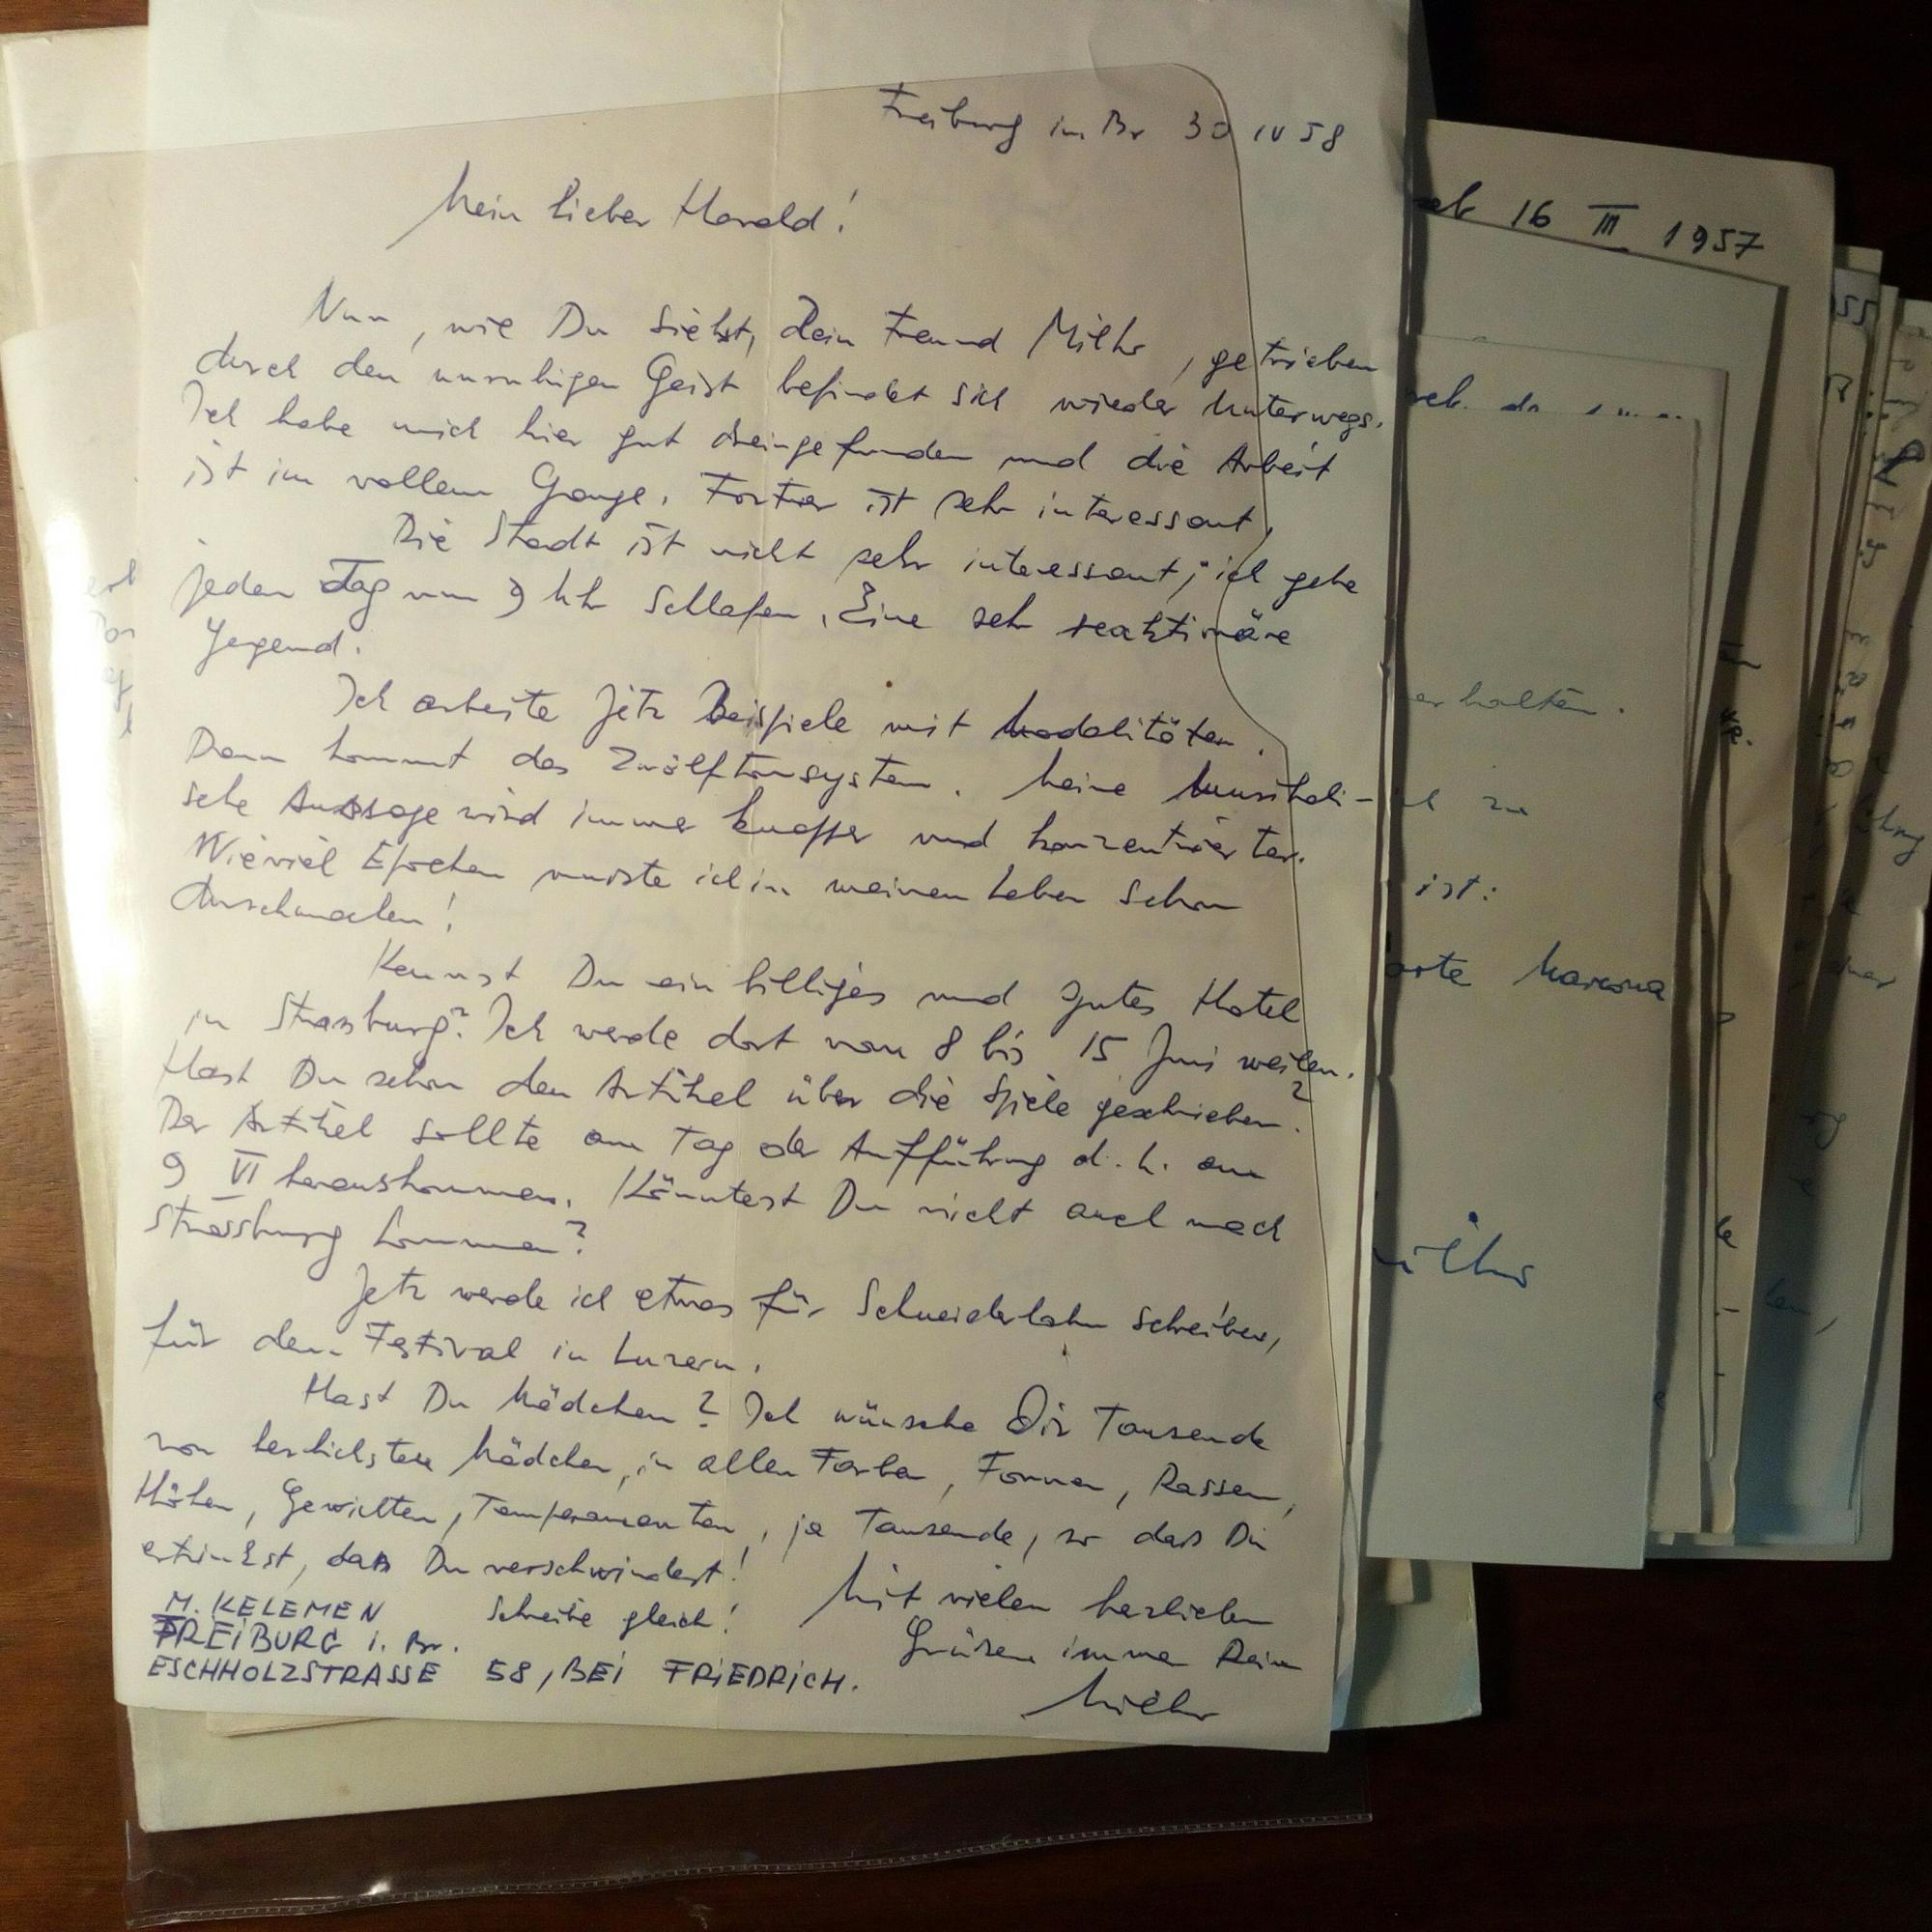 Freiburg im Br 30 IV 58
Mein lieber Harald!
Nun, wie Du siehst, Dein Freund Milko, getrieben
durch den unruhigen Geist befindet sich wieder unterwegs.
Ich habe mich hier gut dreingefunden und die Arbeit
ist im vollem Gange. Fortner ist sehr interessant.
Die Stadt ist nicht sehr interessant; ich gehe
jeden Tag um 9 Uhr schlafen. Eine sehr reaktionäre
Gegend.
Ich arbeite jetz Beispiele mit Modalitäten.
Dann kommt das Zwölftonsystem. Meine Musikali-
sche Aussage wird immer knapper und konzentrierter.
Wieviel Epochen musste ich in meinen Leben schon
durschmachen!
Kennst Du ein billiges und gutes Hotel
in Strassburg? Ich werde dort vom 8 bis 15 Juni weilen.
Hast Du schon den Artikel über die Spiele geschrieben?
Der Artikel sollte am Tag der Aufführung d.h. am
9 VI herauskommen. Könntest Du nicht auch nach
Strassburg kommen?
Jetz werde ich etwas für Schneiderhahn schreiben,
für den Festival in Luzern.
Hast Du Mädchen? Ich wünsche Dir Tausende
von herlichsten Mädchen, in allen Farben, Formen, Rassen,
Höhen, Gewichten, Temperamenten, ja Tausende, so dass Du
ertrinkst, dass Du verschwindest!
Schreibe gleich! Mit vielen herzlichen
Grüssen immer Dein
Milko
M. KELEMEN
FREIBURG i. Br.
ESCHHOLZSTRASSE 58, BEI FRIEDRICH.
16 III 1957
erhalten.
ist: